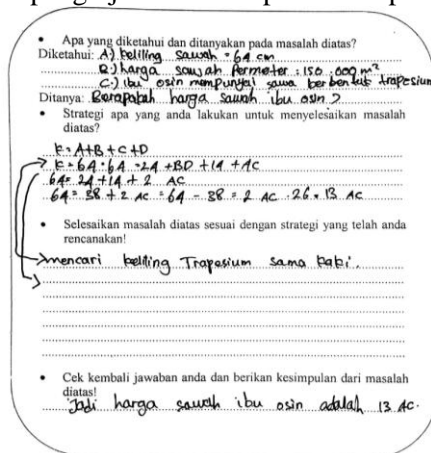 • Apa yang diketahui dan ditanyakan pada masalah diatas?
Diketahui: A) keliling sawah = 64 cm
B) harga sawah Permeter : 150.000 m²
C.) Ibu osin mempunyai sawa berbentuk trapesium
Ditanya: Berapakah harga sawah ibu osin ?
• Strategi apa yang anda lakukan untuk menyelesaikan masalah
diatas?
k = A+B+C+D
k = 64 . 64 = 24 + BD + 14 + AC
64 = 24 + 14 + 2 AC
64 = 38 + 2 AC = 64 - 38 = 2 AC . 26 = 13 AC
• Selesaikan masalah diatas sesuai dengan strategi yang telah anda
rencanakan!
mencari keliling Trapesium sama kaki.
• Cek kembali jawaban anda dan berikan kesimpulan dari masalah
diatas!
Jadi harga sawah ibu osin adalah 13 AC.